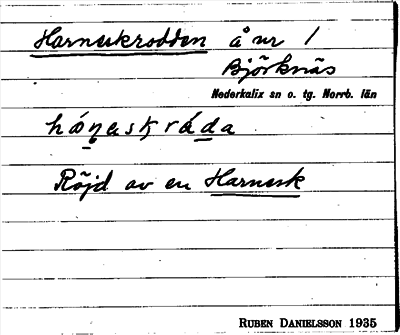 Harneskrodden å nr 1
Björknäs
Nederkalix sn o. tg. Norrb. län
hóṇeskráda
Röjd av en Harnesk
RUBEN DANIELSSON 1935